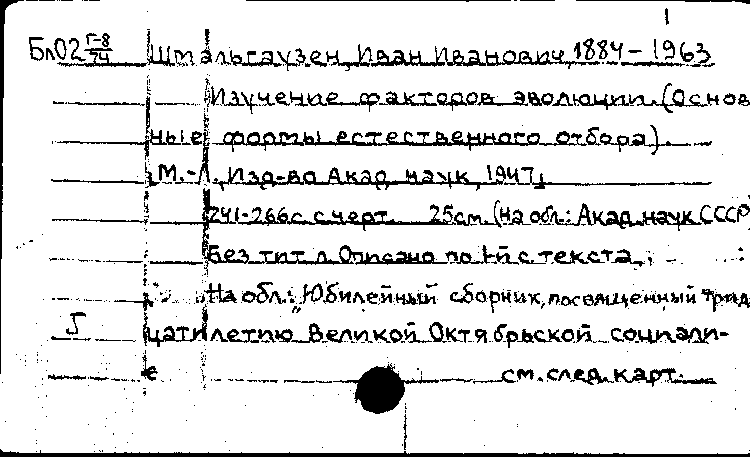 1
Бл02 Г-8/74 Шмальгаузен, Иван Иванович, 1884-1963
Изучение факторов эволюции. (Основ
ные формы естественного отбора).
[М.-Л., Изд-во Акад. наук, 1947]
241-266с. с черт. 25см. (На обл.: Акад. наук СССР)
Без тит. л. Описано по 1-й с. текста.
На обл.: "Юбилейный сборник, посвященный трид
5 цатилетию Великой Октябрьской социали-
см. след. карт.